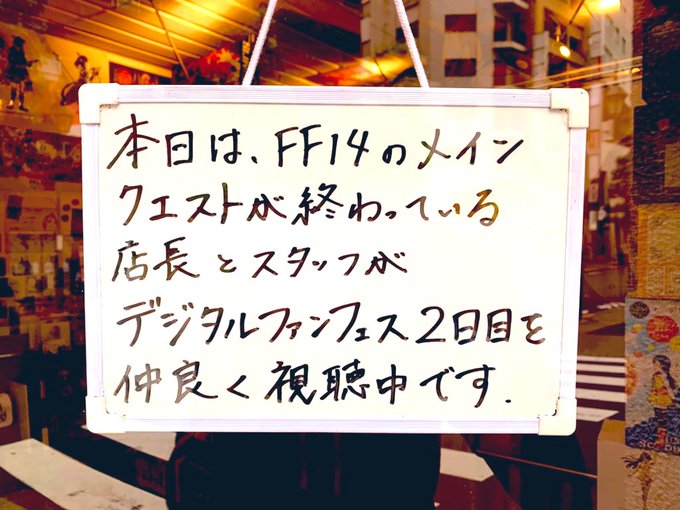 本日は、FF14のメイン
クエストが終わっている
店長とスタッフが
デジタルファンフェス2日目を
仲良く視聴中です.